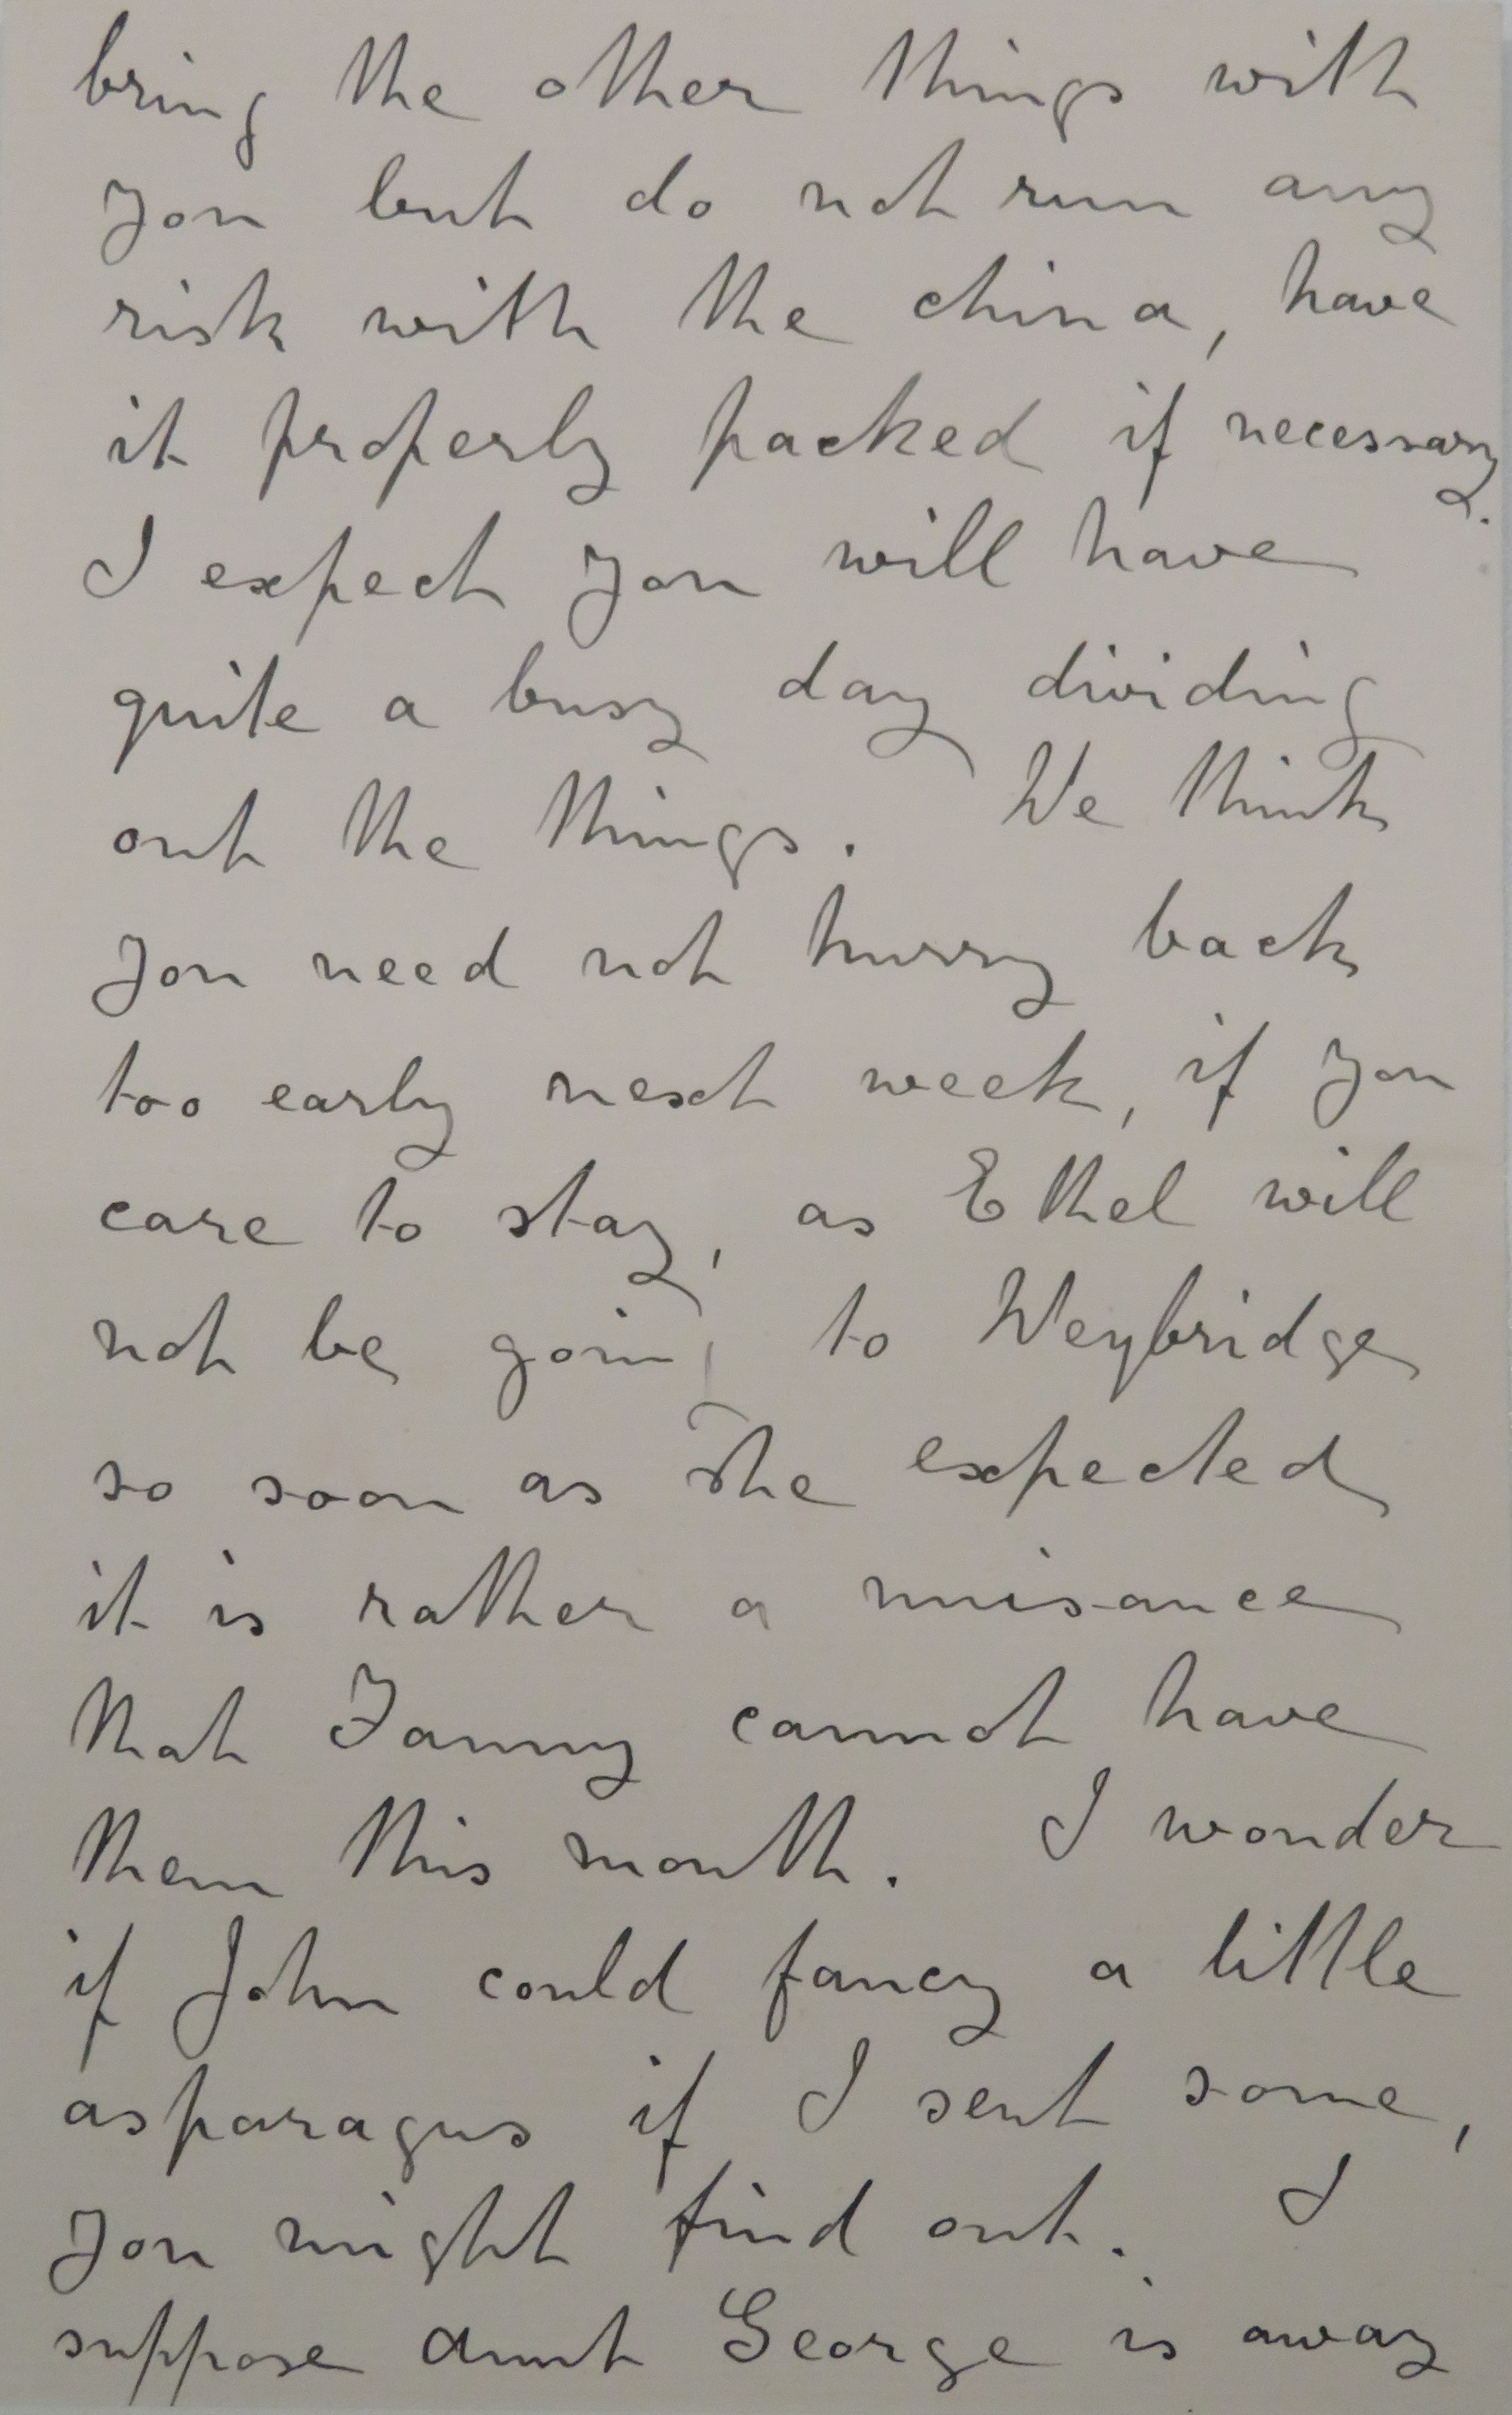 bring the other things with
you but do not run any
risk with the china, have
it properly packed if necessary.
I expect you will have
quite a busy day dividing
out the things. We think
you need not hurry back
too early next week, if you
care to stay, as Ethel will
not be going to Weybridge
so soon as she expected
it is rather a nuisance
that Fanny cannot have
them this month. I wonder
if John could fancy a little
asparagus if I sent some,
you might find out. I
suppose Aunt George is away